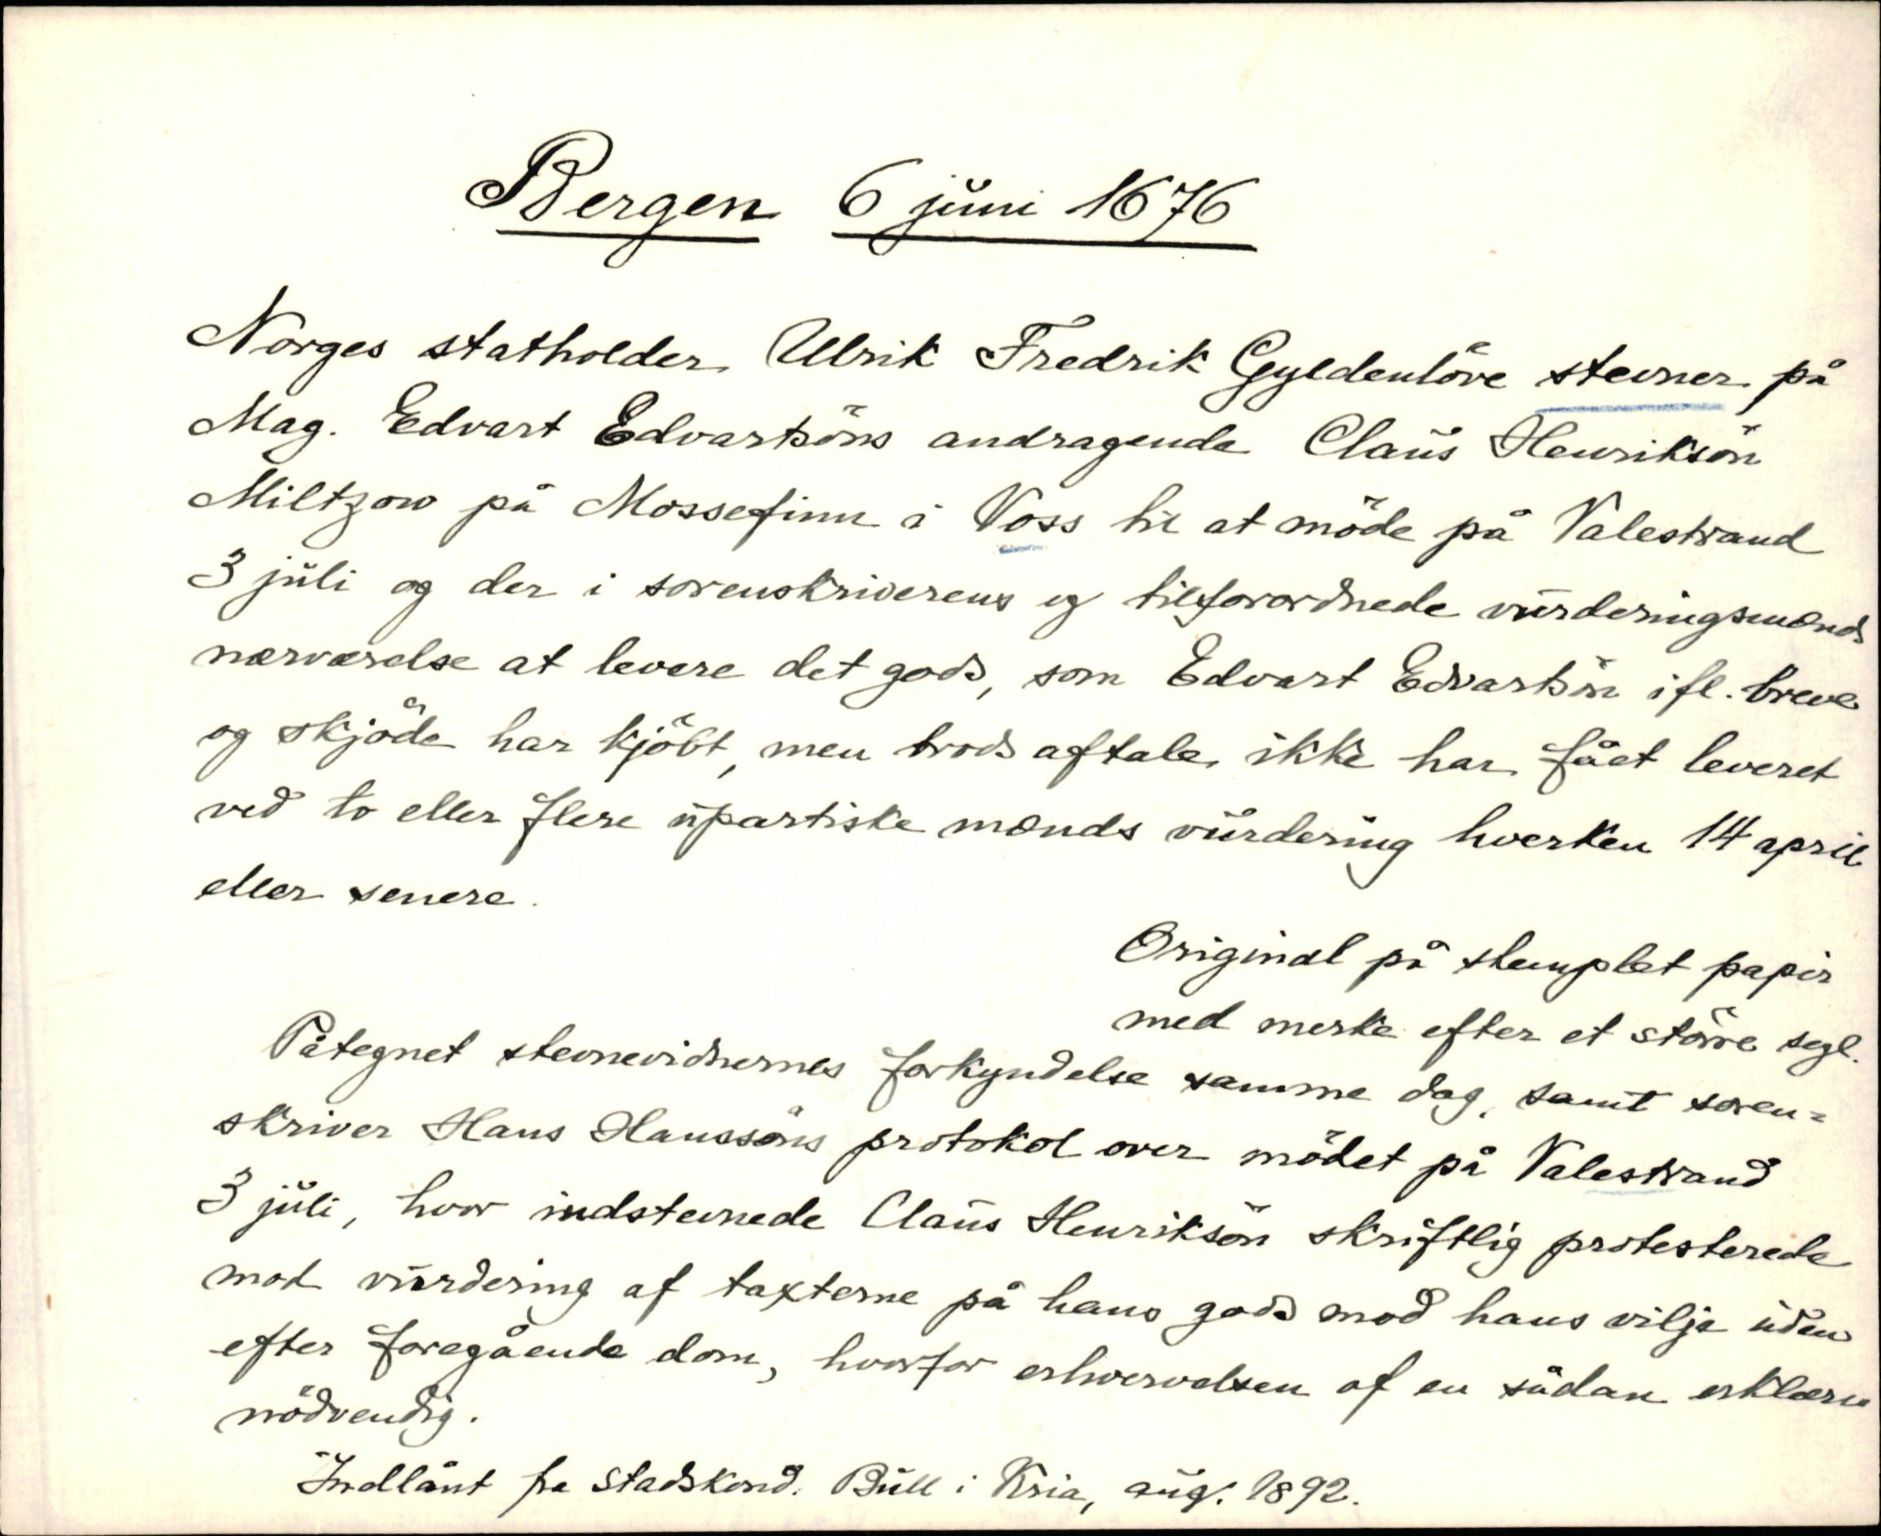 Bergen 6 juni 1676
Norges statholder Ulrik Fredrik Gyldenlöve stevner på
Mag. Edvart Edvartsöns andragende Claus Henriksön
Miltzow på Mossefinn i Voss til at möde på Valestrand
3 juli og der i sorenskriverens og tilforordnede vurderingsmænds
nærværelse at levere det gods, som Edvart Edvartsön ifl. breve
og skjöde har kjöbt, men trods aftale ikke har fået leveret
ved to eller flere upartiske mænds vurdering hverken 14 april
eller senere.
Original på stemplet papir
med merke efter et större segl.
Påtegnet stevnevidnernes forkyndelse samme dag, samt soren=
skriver Hans Hanssöns protokol over mödet på Valestrand
3 juli, hvor indstevnede Claus Henriksön skriftlig protesterede
mod vurdering af taxterne på hans gods mod hans vilje uden
efter foregående dom, hvorfor erhvervelsen af en sådan erklæres
nödvendig.
Indlånt fra Stadskond. Bull i Kria, aug. 1892.